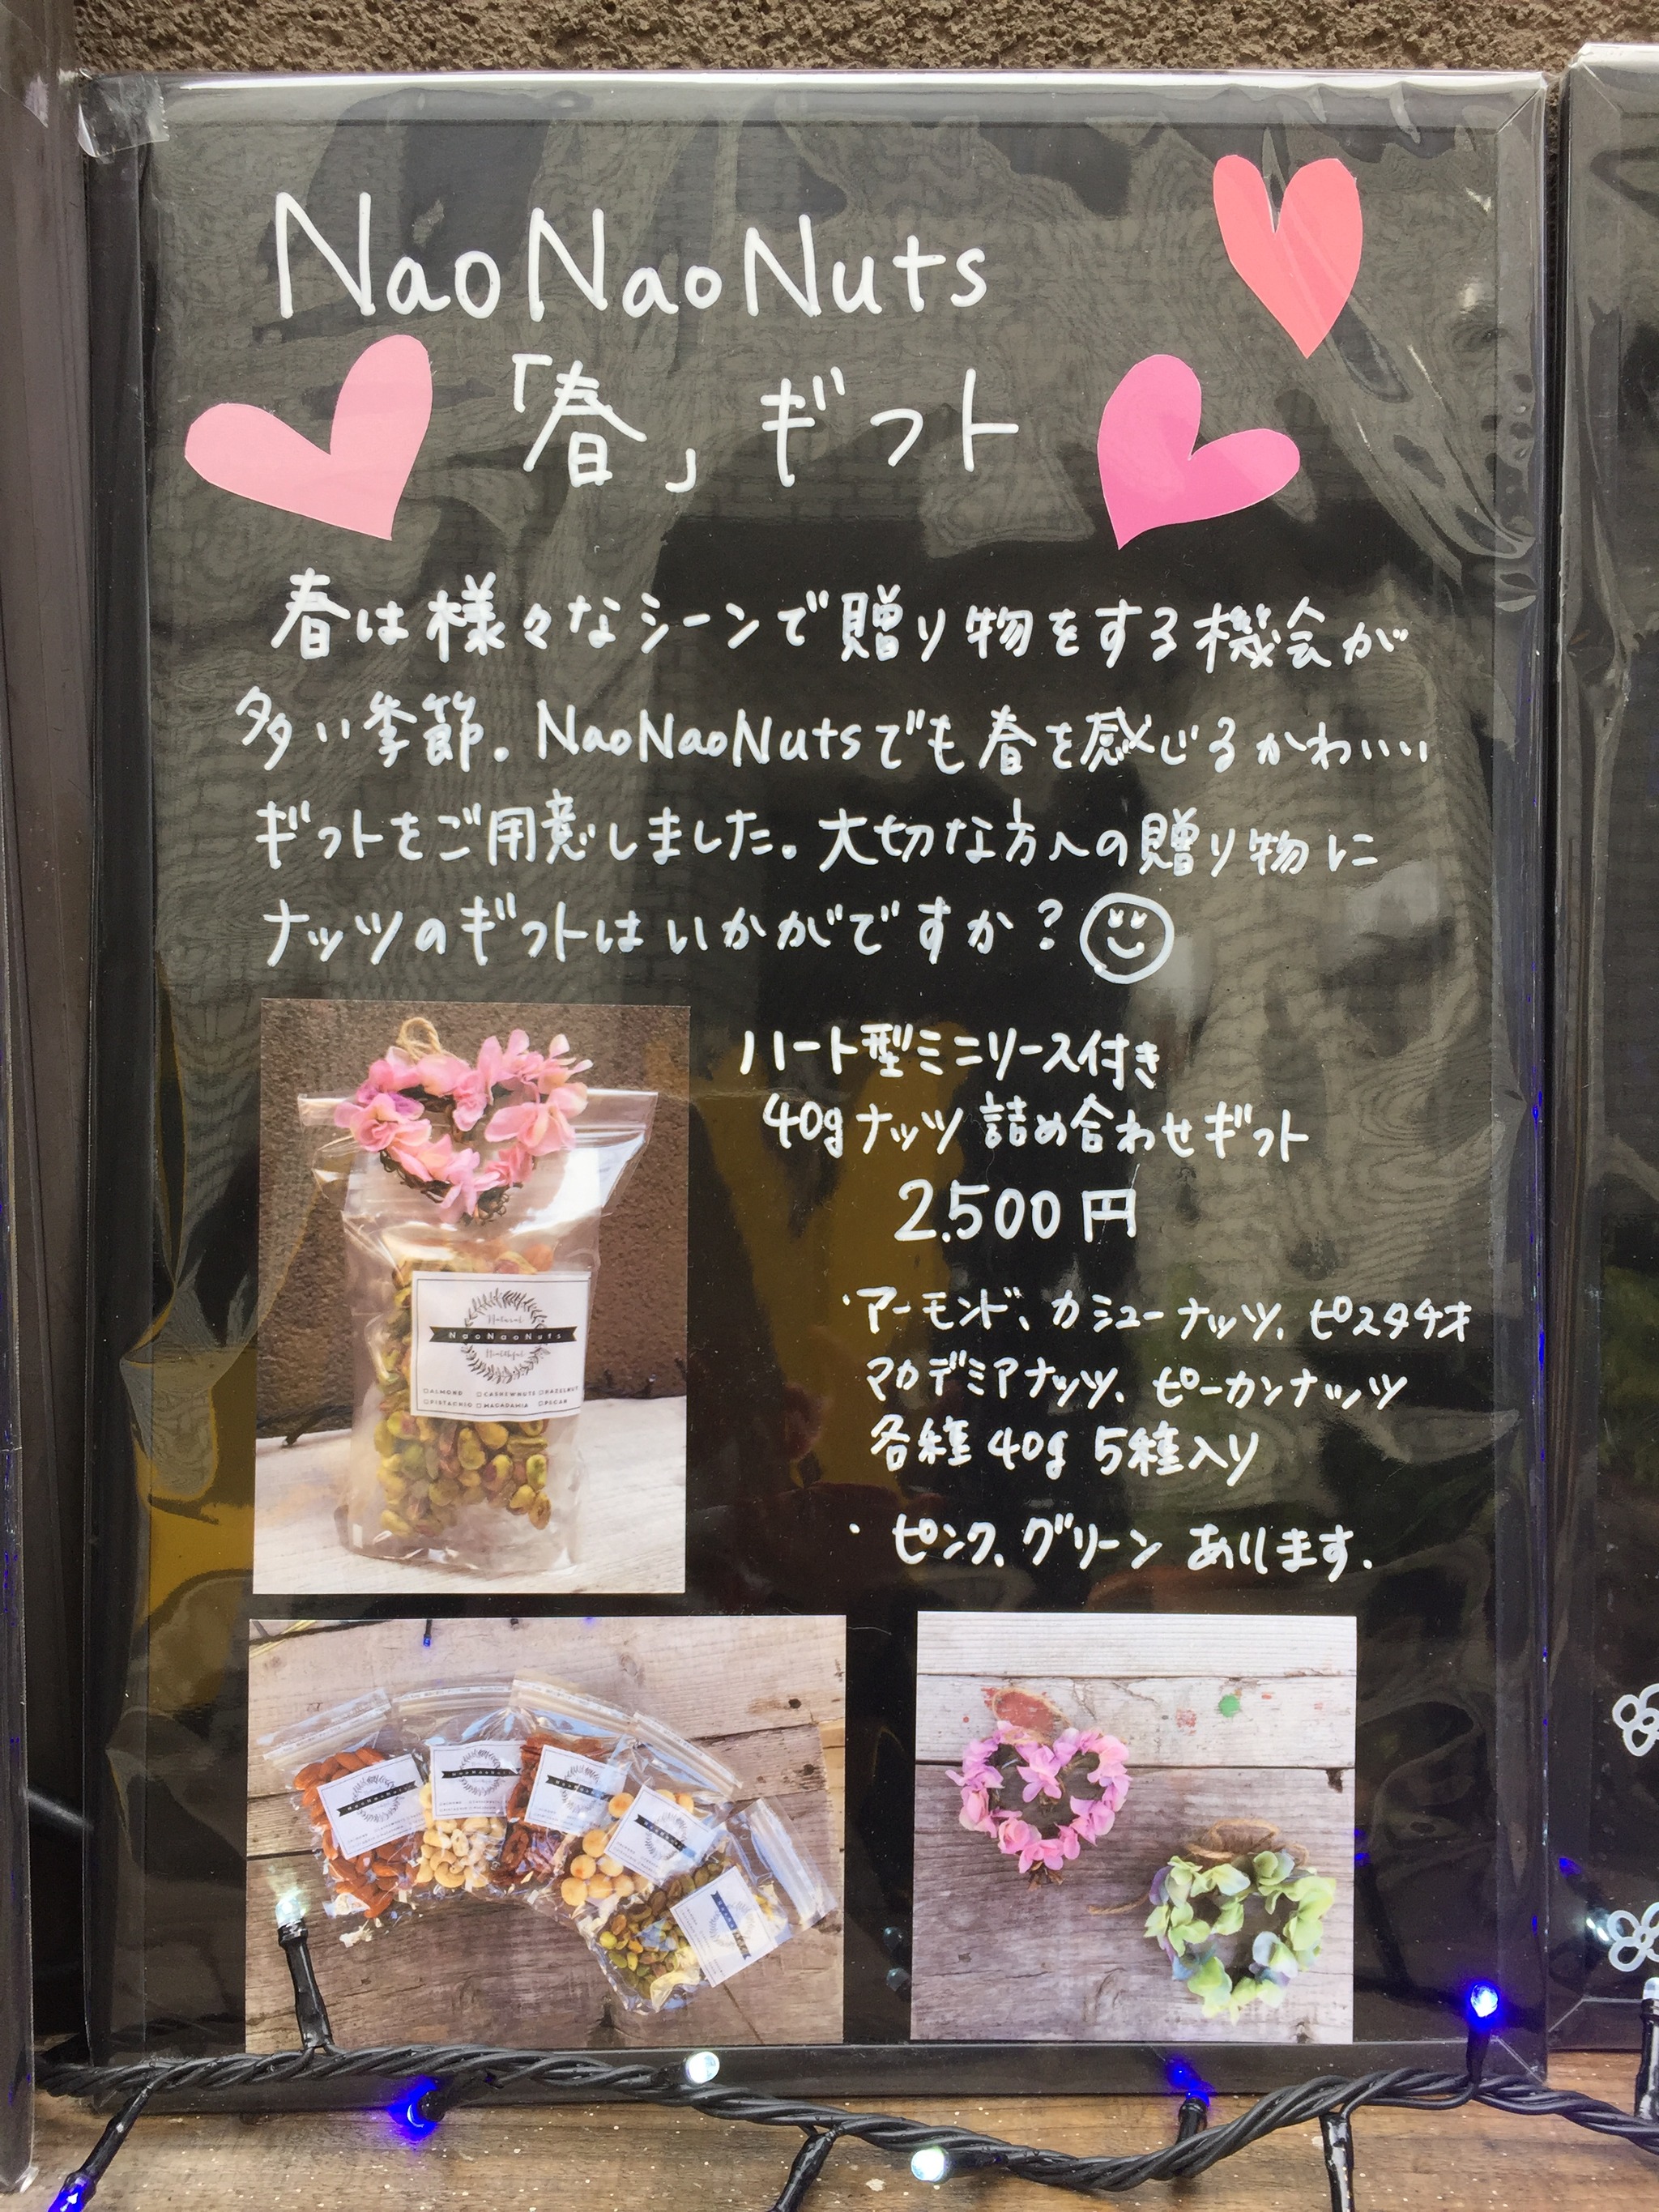 NaoNaoNuts
「春」ギフト
春は様々なシーンで贈り物をする機会が
多い季節。NaoNaoNutsでも春を感じるかわいい
ギフトをご用意しました。大切な方への贈り物に
ナッツのギフトはいかがですか?
ハート型ミニリース付き
40gナッツ詰め合わせギフト
2.500円
・アーモンド、カシューナッツ、ピスタチオ
マカデミアナッツ、ピーカンナッツ
各種40g 5種入り
・ピンク、グリーン あります.
Natural
NaoNaoNuts
Healthful
□ALMOND □CASHEWNUTS □HAZELNUT
□PISTACHIO □MACADAMIA □PECAN